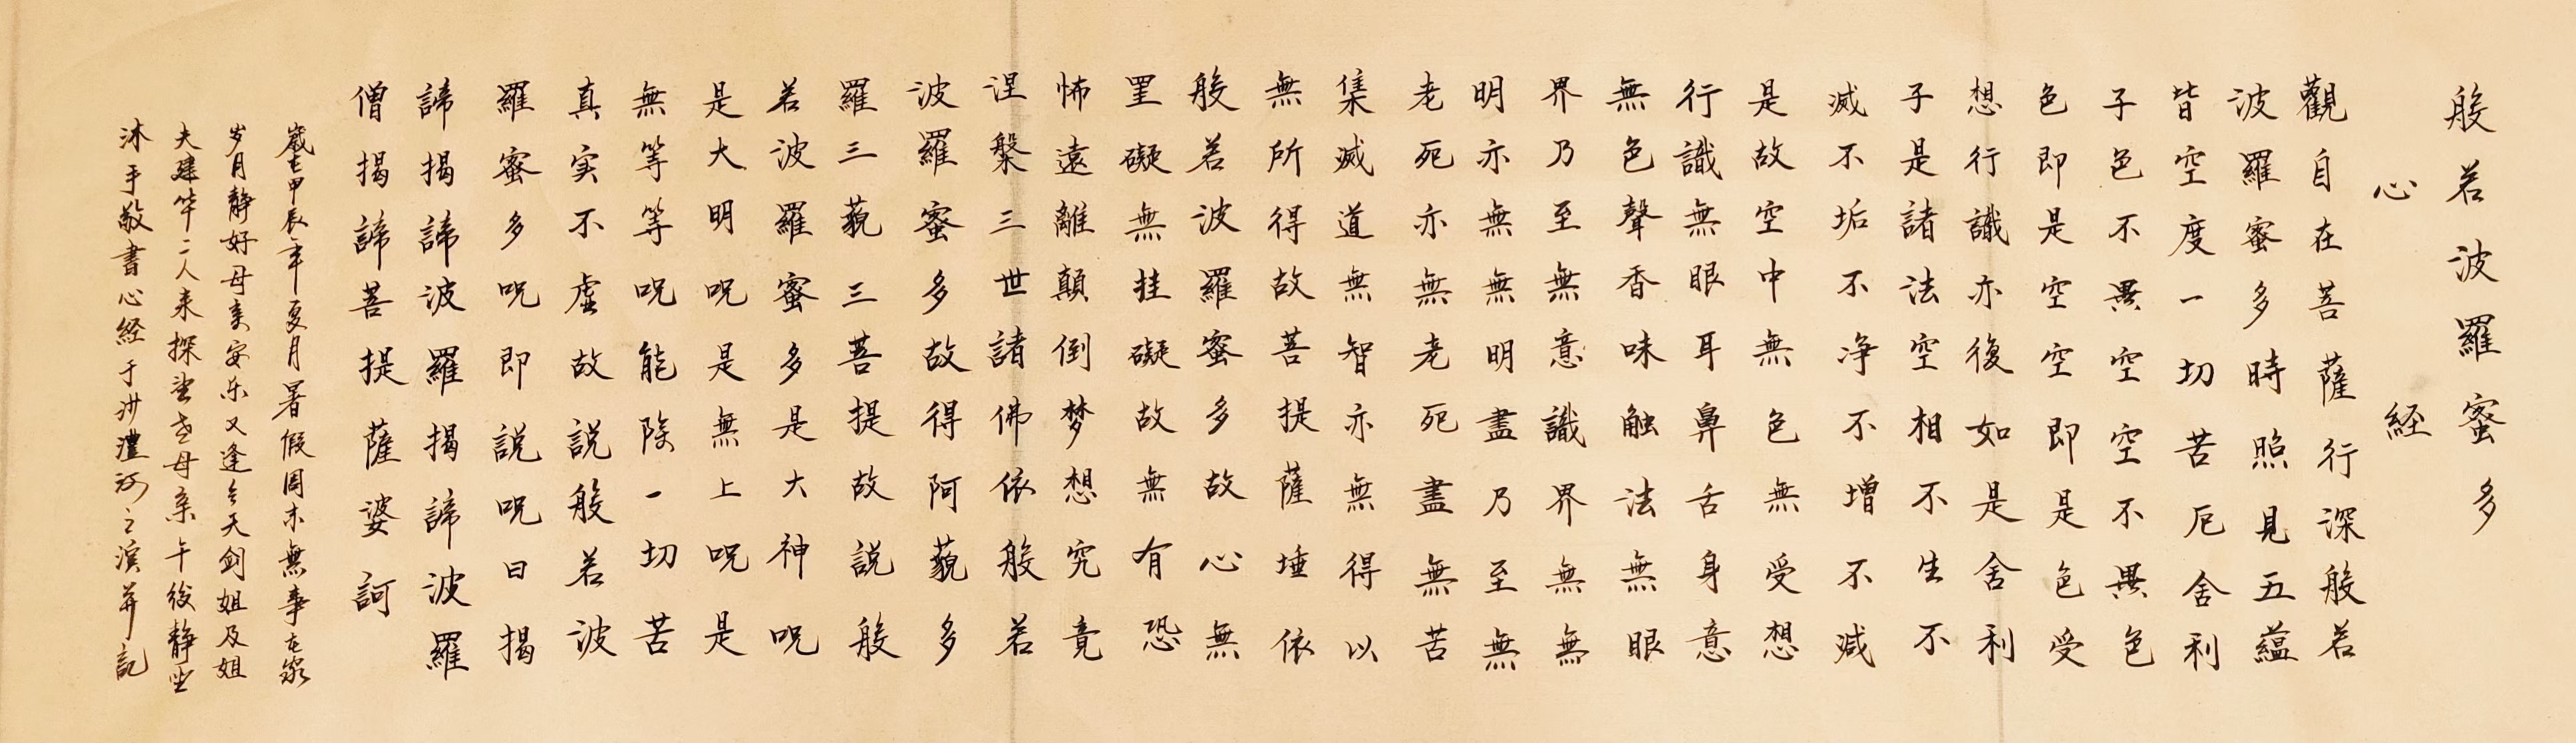 般若波羅蜜多
心経
觀自在菩薩行深般若
波羅蜜多時照見五蘊
皆空度一切苦厄舍利
子色不異空空不異色
色即是空空即是色受
想行識亦復如是舍利
子是諸法空相不生不
滅不垢不净不增不減
是故空中無色無受想
行識無眼耳鼻舌身意
無色聲香味触法無眼
界乃至無意識界無無
明亦無無明盡乃至無
老死亦無老死盡無苦
集滅道無智亦無得以
無所得故菩提薩埵依
般若波羅蜜多故心無
罣礙無挂礙故無有恐
怖遠離顛倒梦想究竟
涅槃三世諸佛依般若
波羅蜜多故得阿藐多
羅三藐三菩提故説般
若波羅蜜多是大神呪
是大明呪是無上呪是
無等等呪能除一切苦
真实不虛故説般若波
羅蜜多呪即説呪曰揭
諦揭諦波羅揭諦波羅
僧揭諦菩提薩婆訶
歲在甲辰年夏月暑假周末無事在家
岁月静好母亲安乐又逢今天釗姐及姐
夫建华二人来探望老母亲午後静坐
沐手敬書心経于沙澧河之濱并記